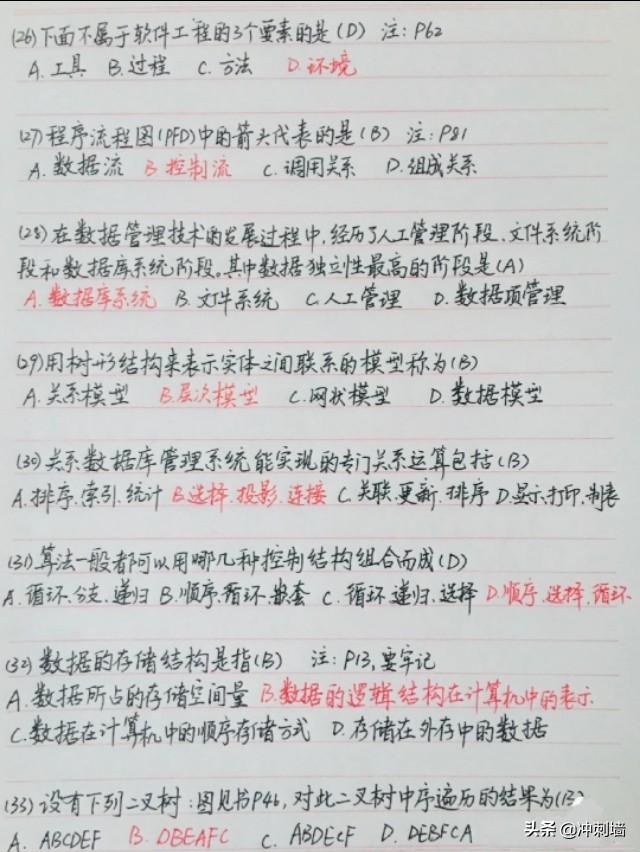 (26)下面不属于软件工程的3个要素的是(D) 注:P62
A.工具 B.过程 C.方法 D.环境
(27)程序流程图(PFD)中的箭头代表的是(B) 注:P81
A.数据流 B.控制流 C.调用关系 D.组成关系
(28)在数据管理技术的发展过程中,经历了人工管理阶段、文件系统阶
段和数据库系统阶段。其中数据独立性最高的阶段是(A)
A.数据库系统 B.文件系统 C.人工管理 D.数据项管理
(29)用树形结构来表示实体之间联系的模型称为(B)
A.关系模型 B.层次模型 C.网状模型 D.数据模型
(30)关系数据库管理系统能实现的专门关系运算包括(B)
A.排序.索引.统计 B.选择.投影.连接 C.关联.更新.排序 D.显示.打印.制表
(31)算法一般都可以用哪几种控制结构组合而成(D)
A.循环.分支.递归 B.顺序.循环.嵌套 C.循环.递归.选择 D.顺序.选择.循环
(32)数据的存储结构是指(B) 注:P13,要牢记
A.数据所占的存储空间量 B.数据的逻辑结构在计算机中的表示
C.数据在计算机中的顺序存储方式 D.存储在外存中的数据
(33)设有下列二叉树:图见书P46,对此二叉树中序遍历的结果为(B)
A. ABCDEF B. DBEAFC C. ABDECF D. DEBFCA
头条 @冲刺墙